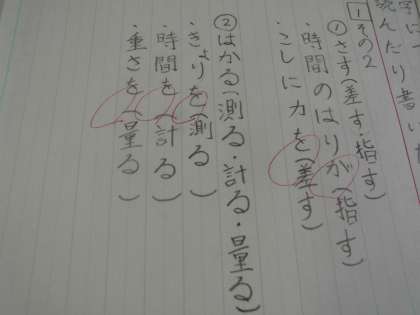 字に
読んだり書いた
1 その2
①さす(差す・指す)
・時間のはりが(指す)
・こしに力を(差す)
②はかる(測る・計る・量る)
・きょりを(測る)
・時間を(計る)
・重さを(量る)